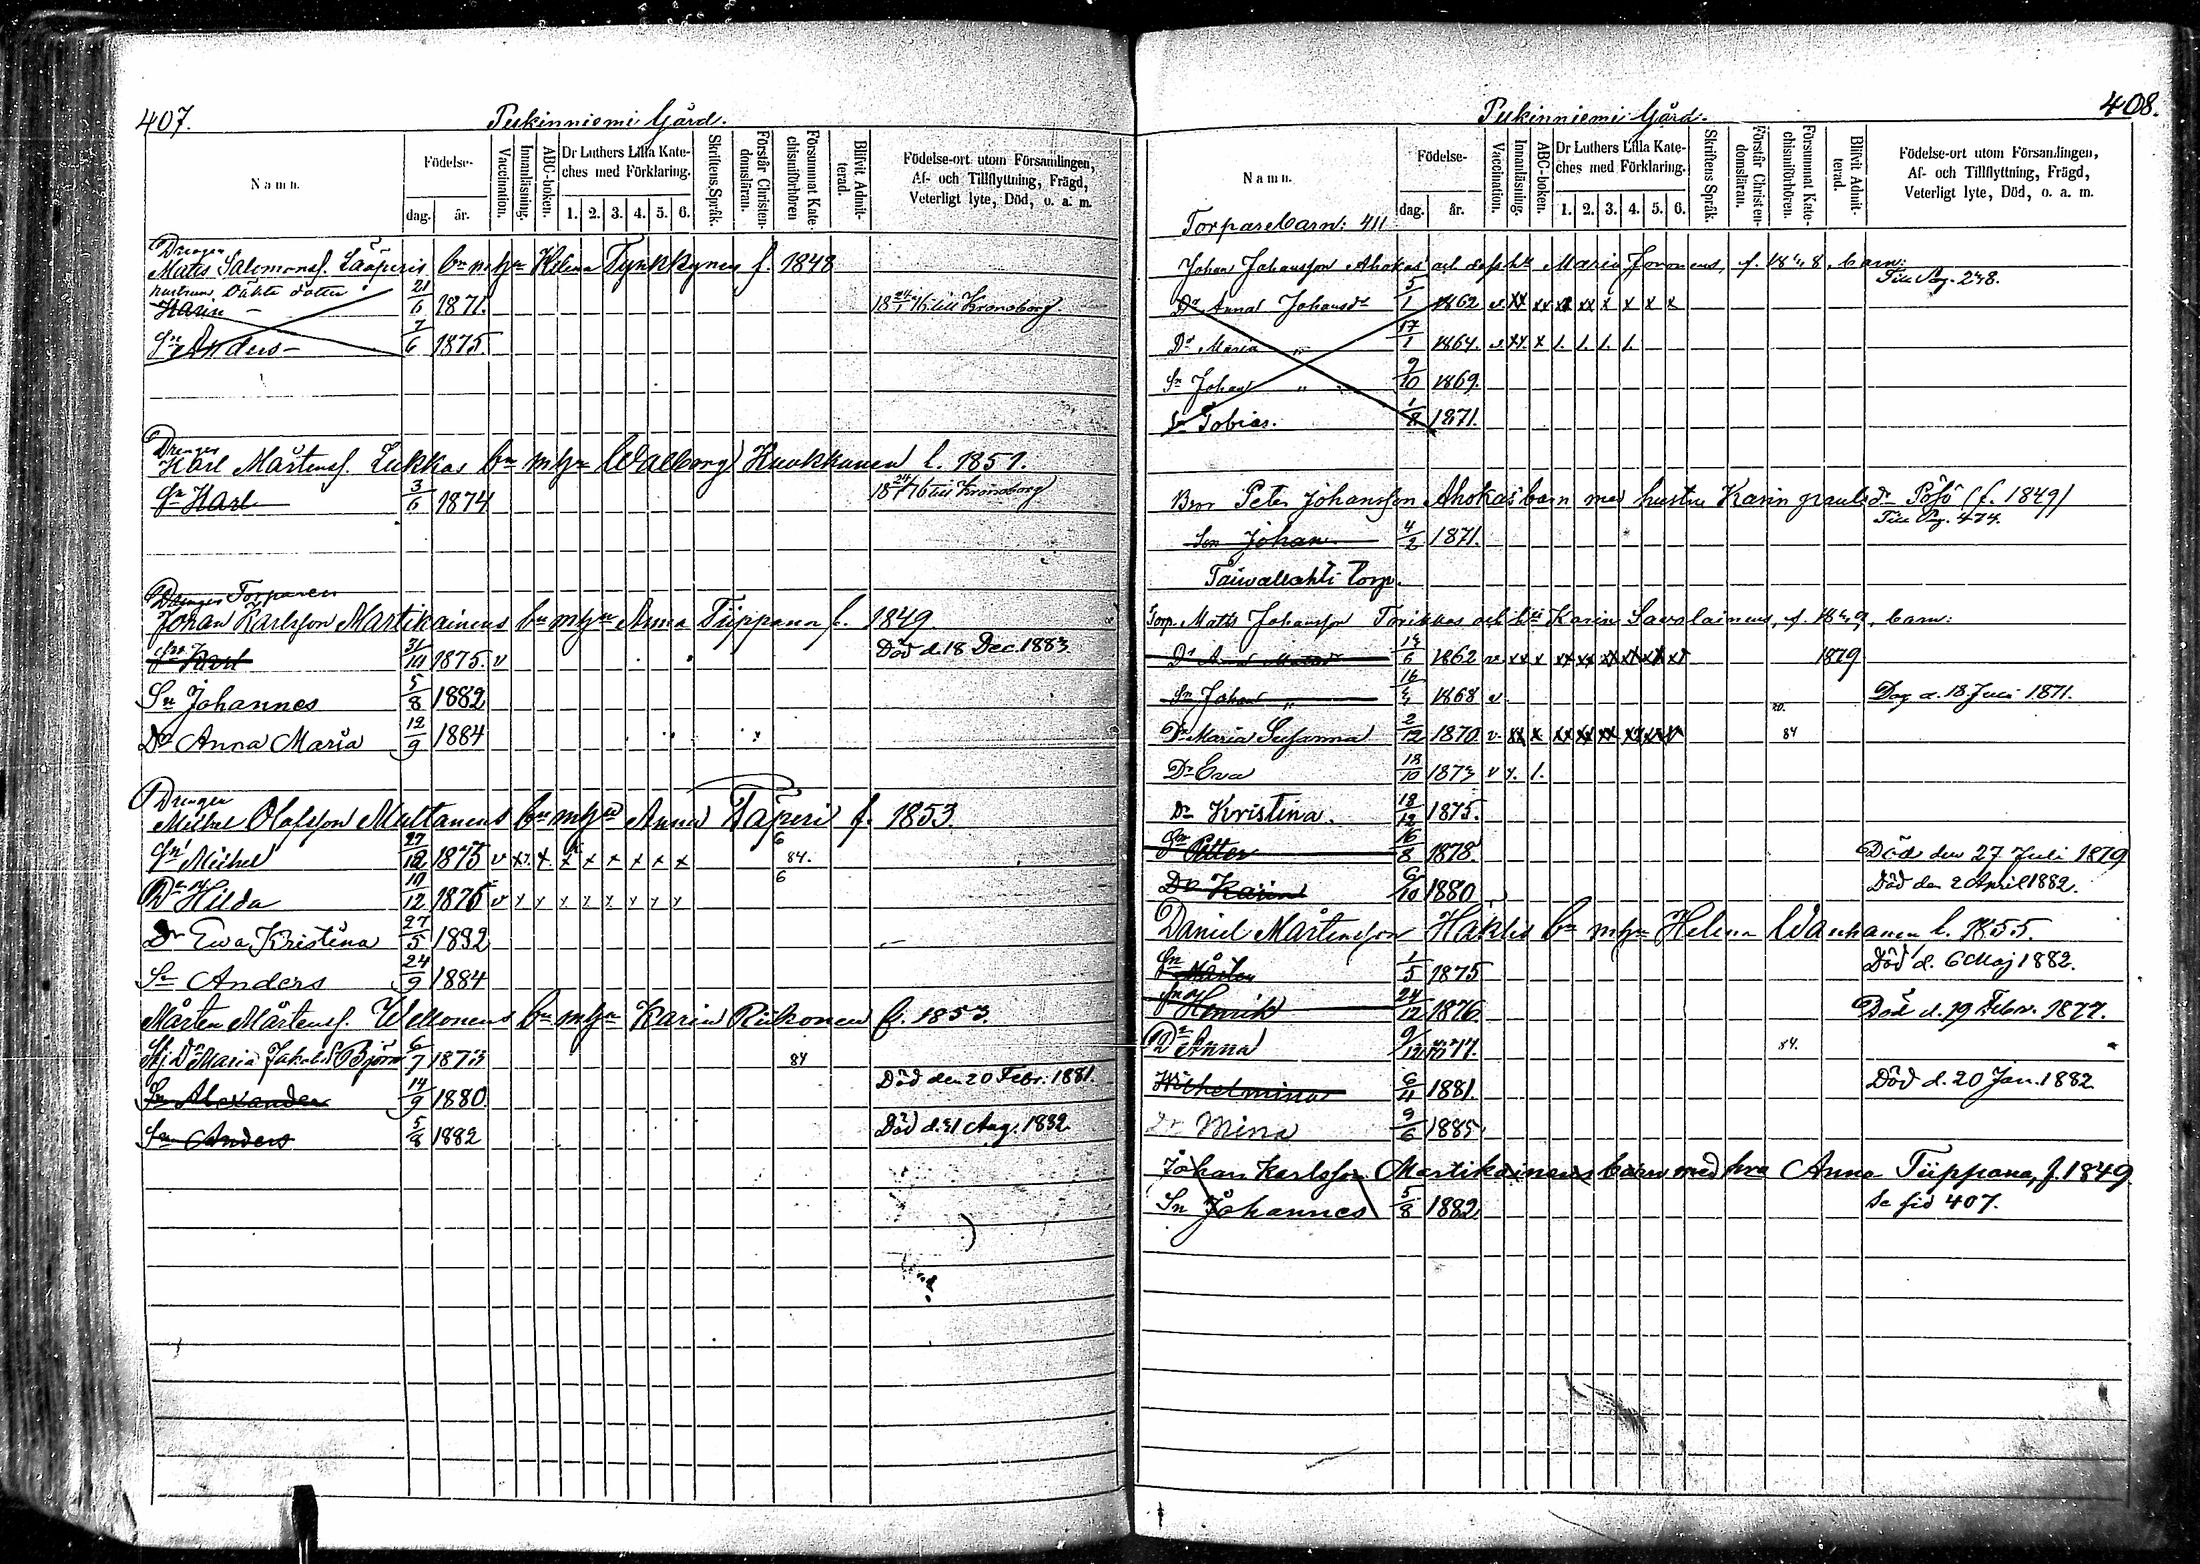 407.
Pukinniemi Gård.
Namn.
Födelse-
dag. år.
Vaccination.
Innanläsning.
ABC-boken.
Dr Luthers Lilla Kate-
ches med Förklaring.
1. 2. 3. 4. 5. 6.
Skriftens Språk.
Förstår Christen-
domsläran.
Försummat Kate-
chismiförhören
Blifvit Admit-
terad.
Födelse-ort utom Församlingen,
Af- och Tillflyttning, Frägd,
Veterligt lyte, Död, o. a. m.
Drengen
Matts Salomonss. Lääperis bn m hu Helena Tynkkynen f. 1848
hustruns oäkta dotter
Karin 21/6 1871. till Kronoborg.
Sn Anders 7/6 1875.
Drengen
Karl Mårtenss. Lukkas bn m hu Walborg Kuokkanen f. 1851.
Sn Karl 3/6 1874 till Kronoborg
Drengen Torparen
Johan Karlsson Martikainens bn m hu Anna Tiippana f. 1849
Sn Karl 31/10 1875. v Död d. 18 Dec. 1883
Sn Johannes 5/8 1882
Dr Anna Maria 12/9 1884
Drengen
Michel Olofsson Multanens bn m hu Anna Täperi f. 1853.
Sn Michel 27/12 1875 v x x x x x x x x 6 84.
Dr Hilda 19/12 1876 v x x x x x x x x 6
Dr Ewa Kristina 27/5 1882
Sn Anders 24/9 1884
Mårten Mårtenss. Wellonens bn m hu Karin Riikonen f. 1853.
Stj. Dr Maria Jakobsd Björn 6/7 1873 84
Sn Alexander 14/9 1880 Död den 20 Febr. 1881.
Sn Anders 5/8 1882 Död d. 31 Aug. 1882.
408.
Pukinniemi Gård.
Namn.
Födelse-
dag. år.
Vaccination.
Innanläsning.
ABC-boken.
Dr Luthers Lilla Kate-
ches med Förklaring.
1. 2. 3. 4. 5. 6.
Skriftens Språk.
Förstår Christen-
domsläran.
Försummat Kate-
chismiförhören.
Blifvit Admit-
terad.
Födelse-ort utom Församlingen,
Af- och Tillflyttning, Frägd,
Veterligt lyte, Död, o. a. m.
Torparebarn: 411
Johan Johansson Ahokas och dess hu Maria Joronens, f. 1848, barn:
Till Pag. 248.
Dr Anna Johansdr 5/1 1862 v xx xx xx xx x x x x
Dr Maria " 17/1 1864. v xx. x 1. 1. 1. 1.
Sn Johan " 9/10 1869.
Sn Tobias. 1/8 1871.
Bror Peter Johansson Ahokas barn med hustru Karin Pösö (f. 1849)
Till Pag. 474.
Son Johan. 4/2 1871.
Taivallahti Torp.
Torp. Matts Johansson Torikkas och hu Karin Savolainens, f. 1849, barn:
Dr Anna 1862 v xx x xx xx xx xx xx xx 1879
Sn Johan " 1868 v Dog d. 18 Juli 1871.
Dr Maria Susanna 2/12 1870 v xx x xx xx xx xx xx 84
Dr Eva 18/10 1873 v x. 1.
Dr Kristina. 18/12 1875.
Sn Petter 16/8 1878. Död den 27 Juli 1879
Dr Karin 6/10 1880 Död den 2 April 1882.
Daniel Mårtensson Haklis bn m hu Helena Wanhanen f. 1855.
Sn Mårten 1/5 1875 Död d. 6 Maj 1882.
Sn Henrik 24/12 1876. Död d. 19 Febr. 1877.
Dr Anna 9/12 1877. 84.
Wilhelmina 6/11 1881. Död d. 20 Jan. 1882
Dr Mina 9/6 1885
Johan Karlsson Martikainens barn med hu Anna Tiippana, f. 1849
Sn Johannes 5/8 1882 Se sid 407.